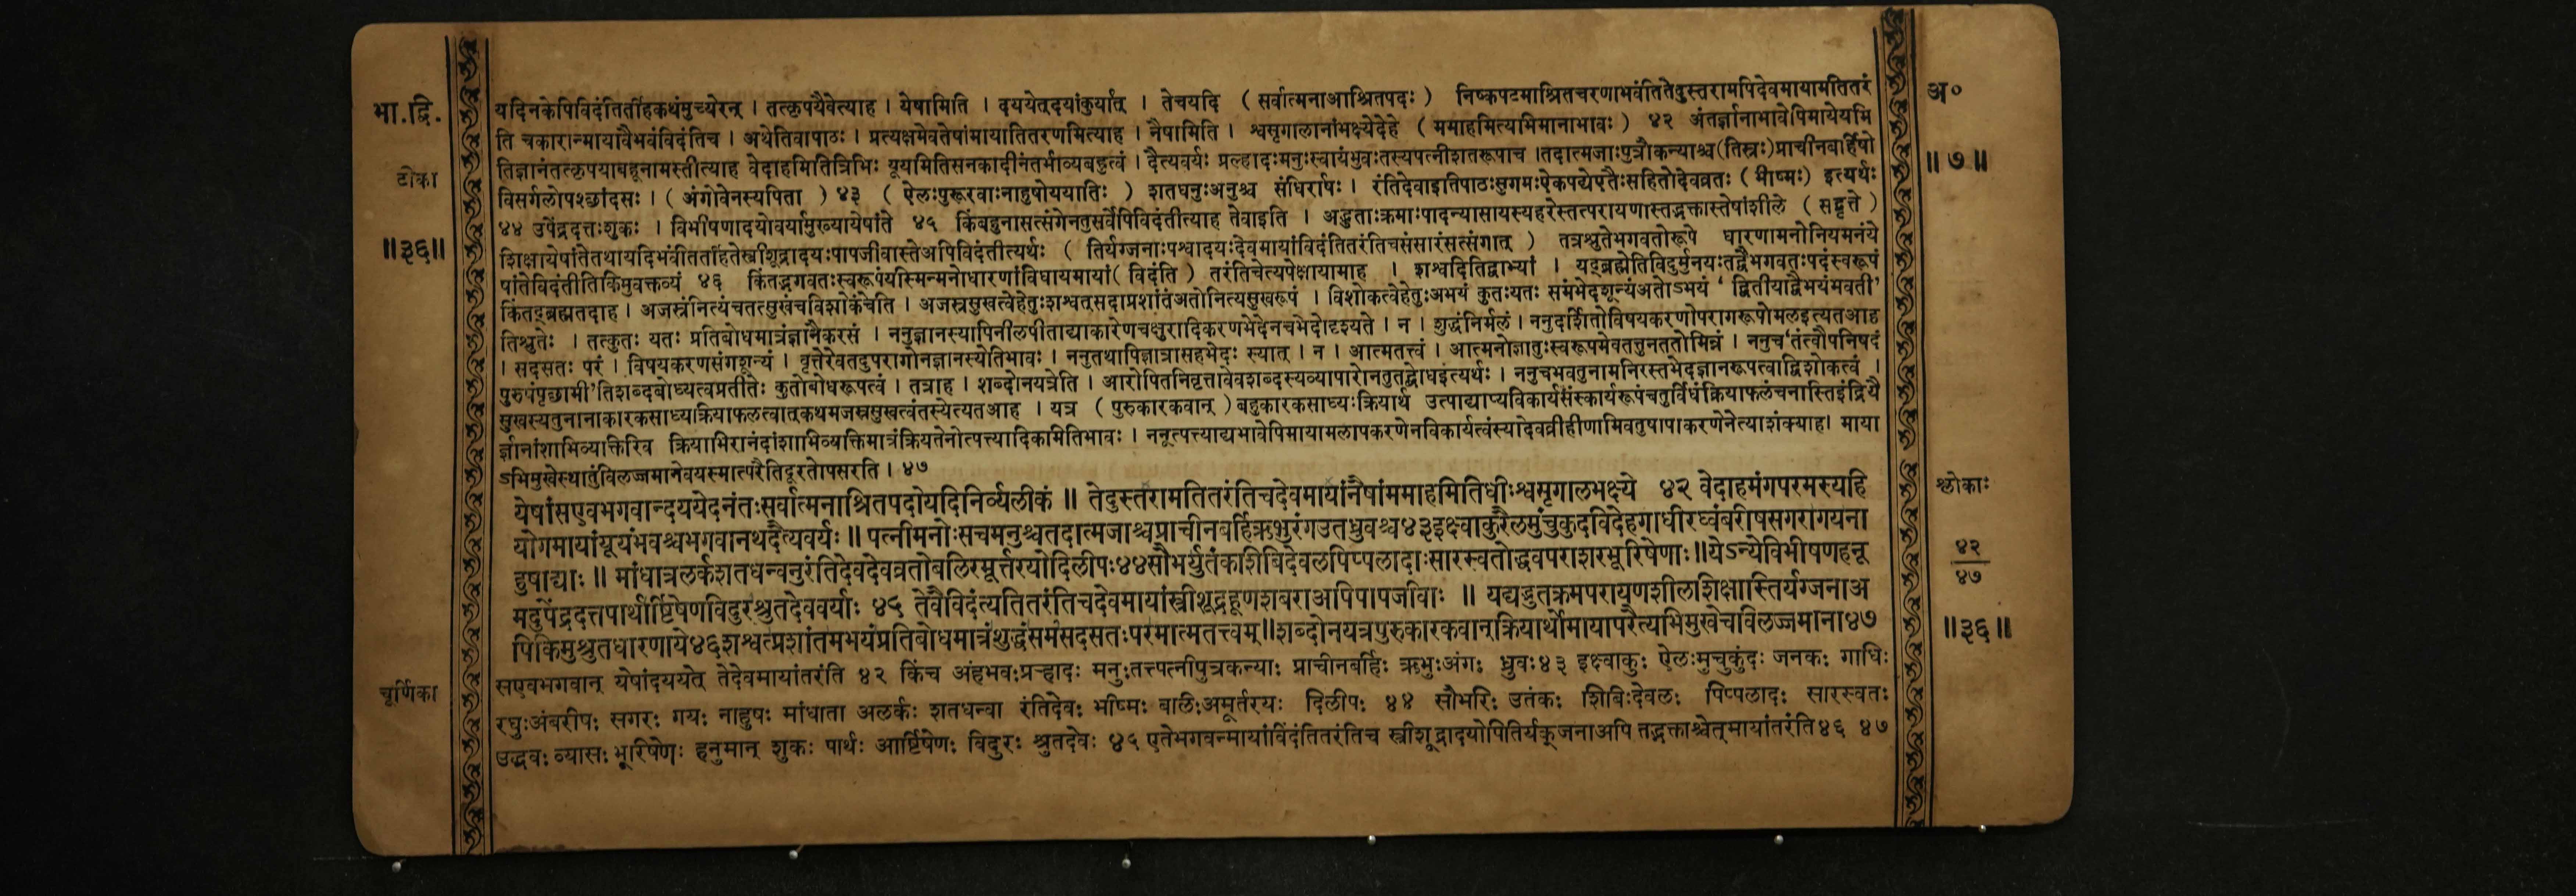 भा.द्वि.
टीका
॥३६॥
यदिनकेपिविदंतितर्हिकथंमुच्येरन् । तत्कृपयैवेत्याह । येषामिति । दययेत्दयांकुर्यात् । तेचयदि ( सर्वात्मनाआश्रितपदः ) निष्कपटमाश्रितचरणाभवंतितेदुस्तरामपिदेवमायामतितरं
ति चकारान्मायावैभवंविदंतिच । अथेतिवापाठः । प्रत्यक्षमेवतेषांमायातितरणमित्याह । नैषामिति । श्वसृगालानांभक्ष्येदेहे ( ममाहमित्यभिमानाभावः ) ४२ अंतर्ज्ञानाभावेपिमायेयमि
तिज्ञानंतत्कृपयाबहूनामस्तीत्याह वेदाहमितित्रिभिः यूयमितिसनकादीनंतर्भाव्यबहुत्वं । दैत्यवर्यः प्रल्हादःमनुःस्वायंभुवःतस्यपत्नीशतरूपाच ।तदात्मजाःपुत्रौकन्याश्च(तिस्रः)प्राचीनबर्हिषो
विसर्गलोपश्छांदसः । ( अंगोवेनस्यपिता ) ४३ ( ऐलःपुरूरवाःनाहुषोययातिः ) शतधनुःअनुश्च संधिरार्षः । रंतिदेवाइतिपाठःसुगमःऐकपद्येएतैःसहितोदेवव्रतः ( भीष्मः) इत्यर्थः
४४ उपेंद्रदत्तःशुकः । विभीषणादयोवर्यामुख्यायेषांते ४५ किंबहुनासत्संगेनतुसर्वेपिविदंतीत्याह तेवाइति । अद्भुताःक्रमाःपादन्यासायस्यहरेस्तत्परायणास्तद्भक्तास्तेषांशीले ( सद्वृत्ते )
शिक्षायेषांतेतथायदिभवंतितर्हितेस्त्रीशूद्रादयःपापजीवास्तेअपिविदंतीत्यर्थः ( तिर्यग्जनाःपश्वादयःदेवमायांविदंतितरंतिचसंसारंसत्संगात् ) तत्रश्रुतेभगवतोरूपे धारणामनोनियमनंये
षांतेविदंतीतिकिमुवक्तव्यं ४६ किंतद्भगवतःस्वरूपंयस्मिन्मनोधारणांविधायमायां( विदंति ) तरंतिचेत्यपेक्षायामाह । शश्वदितिद्वाभ्यां । यद्ब्रह्मेतिविदुर्मुनयःतद्वैभगवतःपदंस्वरूपं
किंतद्ब्रह्मतदाह । अजस्रंनित्यंचतत्सुखंचविशोकंचेति । अजस्रसुखत्वेहेतुःशश्वत्सदाप्रशांतंअतोनित्यसुखरूपं । विशोकत्वेहेतुःअभयं कुतःयतः समंभेदशून्यंअतोऽभयं ‘ द्वितीयाद्वैभयंभवती’
तिश्रुतेः । तत्कुतः यतः प्रतिबोधमात्रंज्ञानैकरसं । ननुज्ञानस्यापिनीलपीताद्याकारेणचक्षुरादिकरणभेदेनचभेदोदृश्यते । न । शुद्धंनिर्मलं । ननुदर्शितोविषयकरणोपरागरूपोमलइत्यतआह
। सदसतः परं । विषयकरणसंगशून्यं । वृत्तेरेवतदुपरागोनज्ञानस्येतिभावः । ननुतथापिज्ञात्रासहभेदः स्यात् । न । आत्मतत्त्वं । आत्मनोज्ञातुःस्वरूपमेवतत्तुनततोभिन्नं । ननुच‘तंत्वौपनिषदं
पुरुषंपृच्छामी’तिशब्दबोध्यत्वप्रतीतेः कुतोबोधरूपत्वं । तत्राह । शब्दोनयत्रेति । आरोपितनिवृत्तावेवशब्दस्यव्यापारोनतुतद्बोधइत्यर्थः । ननुचभवतुनामनिरस्तभेदज्ञानरूपत्वाद्विशोकत्वं ।
सुखस्यतुनानाकारकसाध्यक्रियाफलत्वात्कथमजस्रसुखत्वंतस्येत्यतआह । यत्र ( पुरुकारकवान् ) बहुकारकसाध्यःक्रियार्थ उत्पाद्याप्यविकार्यसंस्कार्यरूपंचतुर्विधंक्रियाफलंचनास्तिइंद्रियै
र्ज्ञानांशाभिव्यक्तिरिव क्रियाभिरानंदांशाभिव्यक्तिमात्रंक्रियतेनोत्पत्त्यादिकमितिभावः । ननूत्पत्त्याद्यभावेपिमायामलापकरणेनविकार्यत्वंस्यादेवव्रीहीणामिवतुषापाकरणेनेत्याशंक्याह। माया
ऽभिमुखेस्थातुंविलज्जमानेवयस्मात्परैतिदूरतोपसरति । ४७
येषांसएवभगवान्दययेदनंतःसर्वात्मनाश्रितपदोयदिनिर्व्यलीकं ॥ तेदुस्तरामतितरंतिचदेवमायांनैषांममाहमितिधीःश्वसृगालभक्ष्ये ४२ वेदाहमंगपरमस्यहि
योगमायांयूयंभवश्चभगवानथदैत्यवर्यः ॥ पत्नीमनोःसचमनुश्चतदात्मजाश्चप्राचीनबर्हिऋभुरंगउतध्रुवश्च४३इक्ष्वाकुरैलमुचुकुदविदेहगाधीरघ्वंबरीषसगरागयना
हुषाद्याः ॥ मांधात्रलर्कशतधन्वनुरंतिदेवदेवव्रतोबलिरमूर्त्तरयोदिलीपः४४सौभर्युतंकशिबिदेवलपिप्पलादाःसारस्वतोद्धवपराशरभूरिषेणाः॥येऽन्येविभीषणहनू
मदुपेंद्रदत्तपार्थार्ष्टिषेणविदुरश्रुतदेववर्याः ४५ तेवैविदंत्यतितरंतिचदेवमायांस्त्रीशूद्रहूणशबराअपिपापजीवाः ॥ यद्यद्भुतक्रमपरायणशीलशिक्षास्तिर्यग्जनाअ
पिकिमुश्रुतधारणाये४६शश्वत्प्रशांतमभयंप्रतिबोधमात्रंशुद्धंसमंसदसतःपरमात्मतत्त्वम्॥शब्दोनयत्रपुरुकारकवान्क्रियार्थोमायापरैत्यभिमुखेचविलज्जमाना४७
चूर्णिका
सएवभगवान् येषांदययेत् तेदेवमायांतरंति ४२ किंच अंहभवःप्रऱ्हादः मनुःतत्त्पत्नीपुत्रकन्याः प्राचीनबर्हिः ऋभुःअंगः ध्रुवः४३ इक्ष्वाकुः ऐलःमुचुकुंदः जनकः गाधिः
रघुःअंबरीषः सगरः गयः नाहुषः मांधाता अलर्कः शतधन्वा रंतिदेवः भीष्मः बलिःअमूर्तरयः दिलीपः ४४ सौभरिः उतंकः शिबिःदेवलः पिप्पलादः सारस्वतः
उद्धवः व्यासः भूरिषेणः हनुमान् शुकः पार्थः आर्ष्टिषेणः विदुरः श्रुतदेवः ४५ एतेभगवन्मायांविंदंतितरंतिच स्त्रीशूद्रादयोपितिर्यक्जनाअपि तद्भक्ताश्चेत्मायांतरंति४६ ४७
अ०
॥७॥
श्लोकाः
४२
४७
॥३६॥